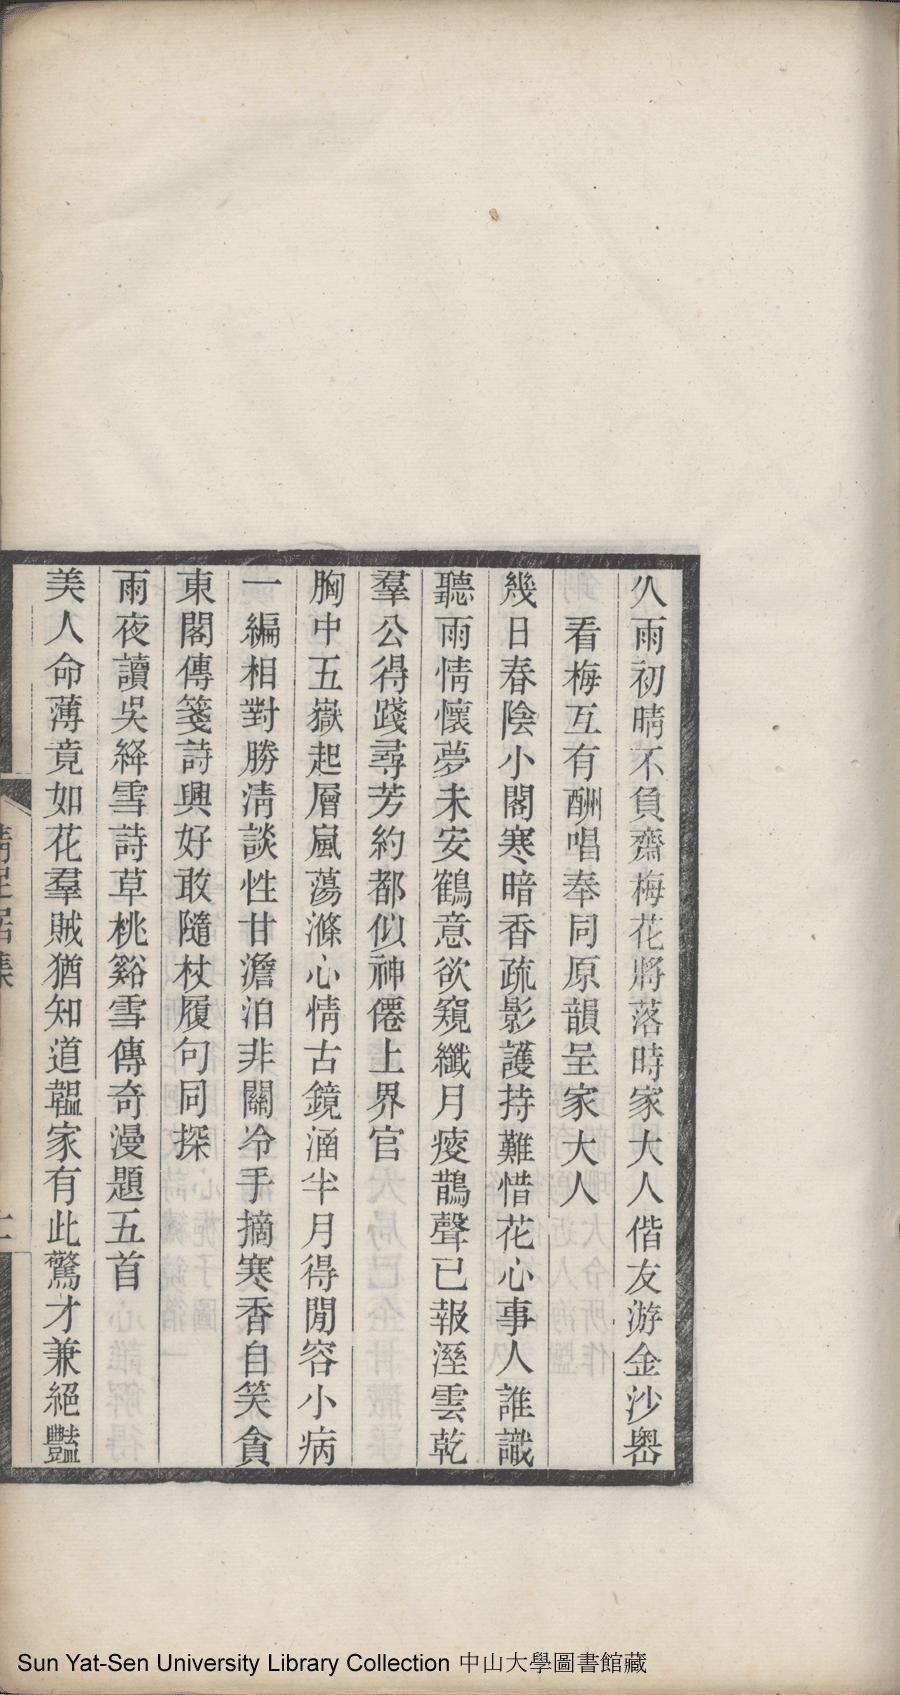 久雨初晴不負齋梅花將落時家大人偕友游金沙嶴
看梅互有酬唱奉同原韻呈家大人
幾日春陰小閣寒暗香疏影護持難惜花心事人誰識
聽雨情懷夢未安鶴意欲窺纖月瘦鵲聲已報溼雲乾
羣公得踐尋芳約都似神僊上界官
胸中五嶽起層嵐蕩滌心情古鏡涵半月得閒容小病
一編相對勝淸談性甘澹泊非關冷手摘寒香自笑貪
東閣傳箋詩興好敢隨杖履句同探
雨夜讀吳絳雪詩草桃谿雪傳奇漫題五首
美人命薄竟如花羣賊猶知道韞家有此驚才兼絕豔
Sun Yat-Sen University Library Collection 中山大學圖書館藏